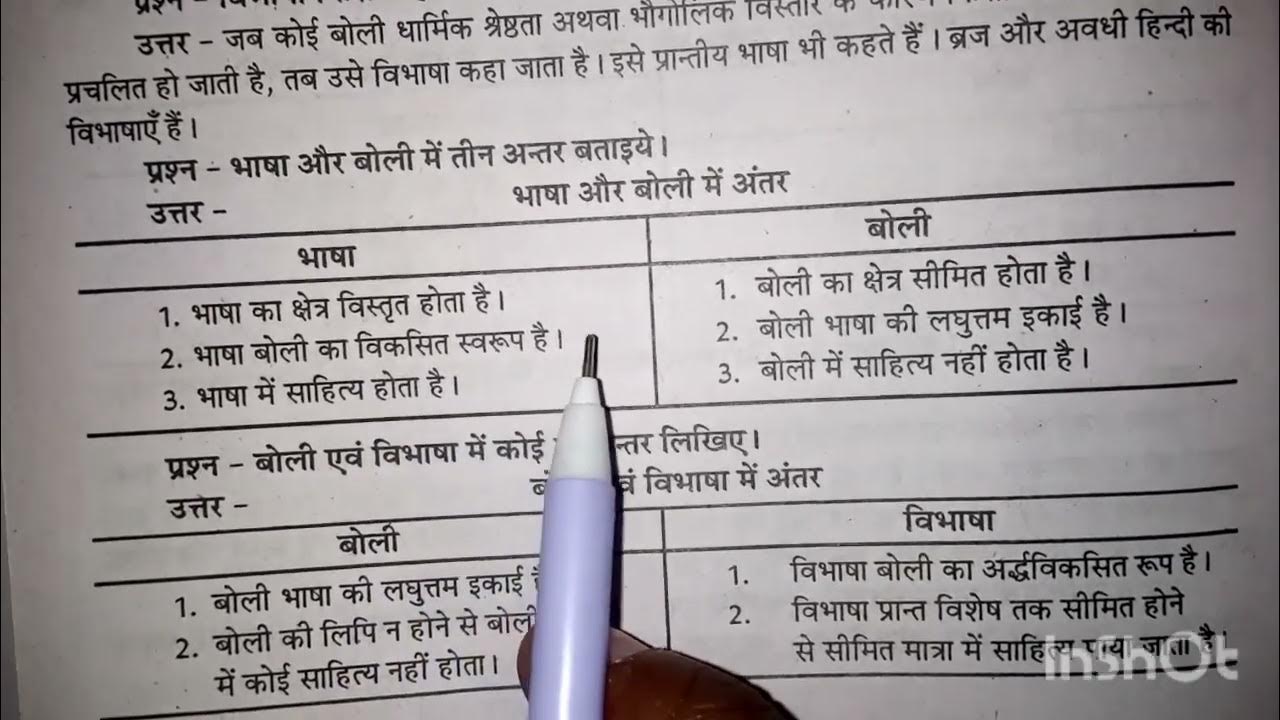 उत्तर – जब कोई बोली धार्मिक श्रेष्ठता अथवा भौगोलिक विस्तार के कारण
प्रचलित हो जाती है, तब उसे विभाषा कहा जाता है। इसे प्रान्तीय भाषा भी कहते हैं। ब्रज और अवधी हिन्दी की
विभाषाएँ हैं।
प्रश्न – भाषा और बोली में तीन अन्तर बताइये।
उत्तर – भाषा और बोली में अंतर
भाषा बोली
1. भाषा का क्षेत्र विस्तृत होता है। 1. बोली का क्षेत्र सीमित होता है।
2. भाषा बोली का विकसित स्वरूप है। 2. बोली भाषा की लघुत्तम इकाई है।
3. भाषा में साहित्य होता है। 3. बोली में साहित्य नहीं होता है।
प्रश्न – बोली एवं विभाषा में कोई लिखिए।
उत्तर – विभाषा में अंतर
बोली विभाषा
1. बोली भाषा की लघुत्तम इकाई 1. विभाषा बोली का अर्द्धविकसित रूप है।
2. बोली की लिपि न होने से बोली 2. विभाषा प्रान्त विशेष तक सीमित होने
में कोई साहित्य नहीं होता। से सीमित मात्रा में साहित्य पाया जाता है।
InShOt